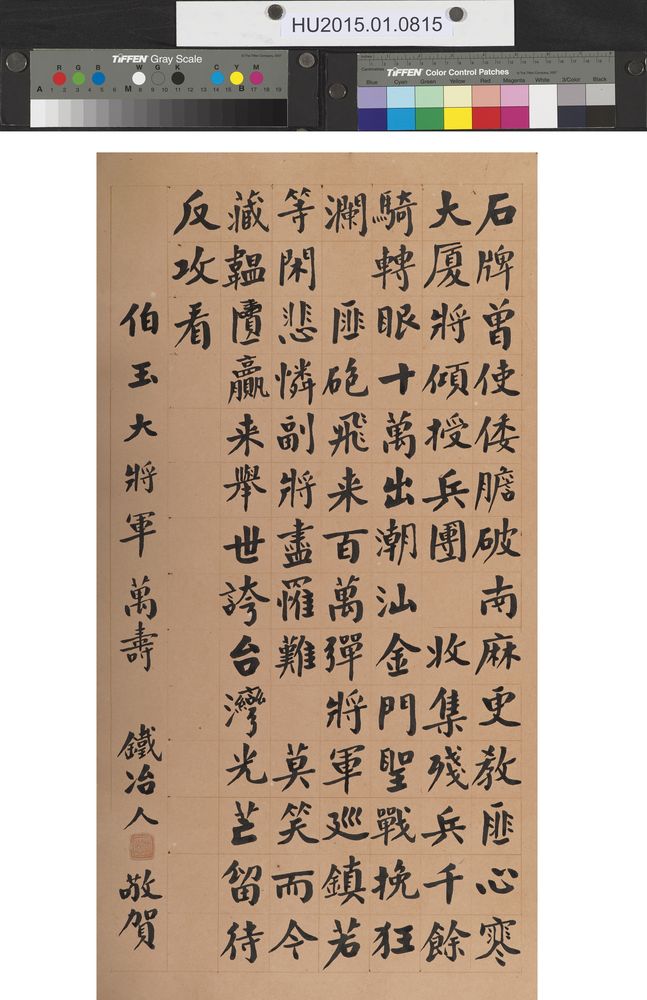 HU2015.01.0815
TIFFEN Gray Scale
R G B W G K C Y M
A 1 2 3 4 5 6 M 8 9 10 11 12 13 14 15 B 17 18 19
TIFFEN Color Control Patches
Blue Cyan Green Yellow Red Magenta White 3/Color Black
石牌曾使倭膽破南麻更教匪心寒
大厦將傾授兵團 收集殘兵千餘
騎轉眼十萬出潮汕金門聖戰挽狂
瀾 匪砲飛来百萬彈將軍巡鎮若
等閑悲憐副將盡罹難 莫笑而今
藏韞匵贏来舉世誇台灣光芒留待
反攻看
伯玉大將軍萬壽 鐵冶人 敬賀